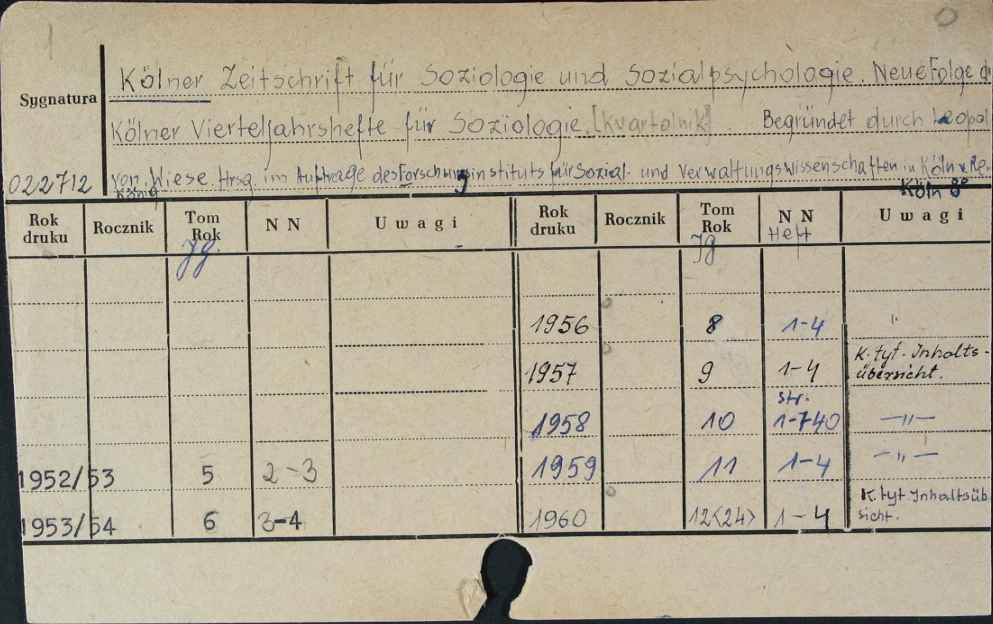 Kölner Zeitschrift für Soziologie und Sozialpsychologie. Neue Folge d
Sygnatura
Kölner Vierteljahrshefte für Soziologie. [Kvartalnik] Begründet durch Leopol
022712
von Wiese. Hrsg. im Auftrage des Forschungsinstituts für Sozial- und Verwaltungswissenschaften in Köln v. Re-
König
Köln 8°
Rok druku Rocznik Tom Rok NN Uwagi Rok druku Rocznik Tom Rok NN Uwagi
Jg. Jg Heft
1956 8 1-4 "
1957 9 1-4 K. tyt. Inhalts-
übersicht.
Str.
1958 10 1-740 —"—
1952/53 5 2-3 1959 11 1-4 —"—
K. tyt Inhaltsüb
1953/54 6 3-4 1960 12<24> 1-4 sicht.